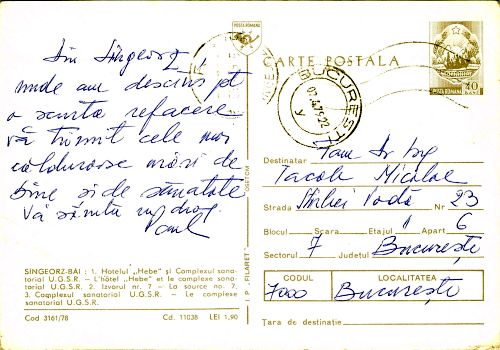 Din Sîngeorz,
unde am descins pt
o scurtă refacere
vă trimit cele mai
călduroase urări de
bine și de sănătate
Vă sărută cu drag
Paul
SÎNGEORZ-BĂI : 1. Hotelul „Hebe" și Complexul sana-
torial U.G.S.R. — L'hôtel „Hebe" et le complexe sana-
torial U.G.S.R. 2. Izvorul nr. 7 — La source no. 7,
3. Complexul sanatorial U.G.S.R. — Le complexe
sanatorial U.G.S.R.
Cod 3161/78 Cd. 11038 LEI 1,90
I. P. „FILARET"
POȘTA ROMÂNĂ
CARTE POȘTALĂ
BUCUREȘTI
POSTA ROMANA 40
BANI
Destinatar Fam Dr Ing
Tacole Nicolae
Strada Știrbei Vodă Nr 23
Blocul Scara Etajul II Apart 6
Sectorul 7 Județul București
CODUL LOCALITATEA
7000 București
Țara de destinație